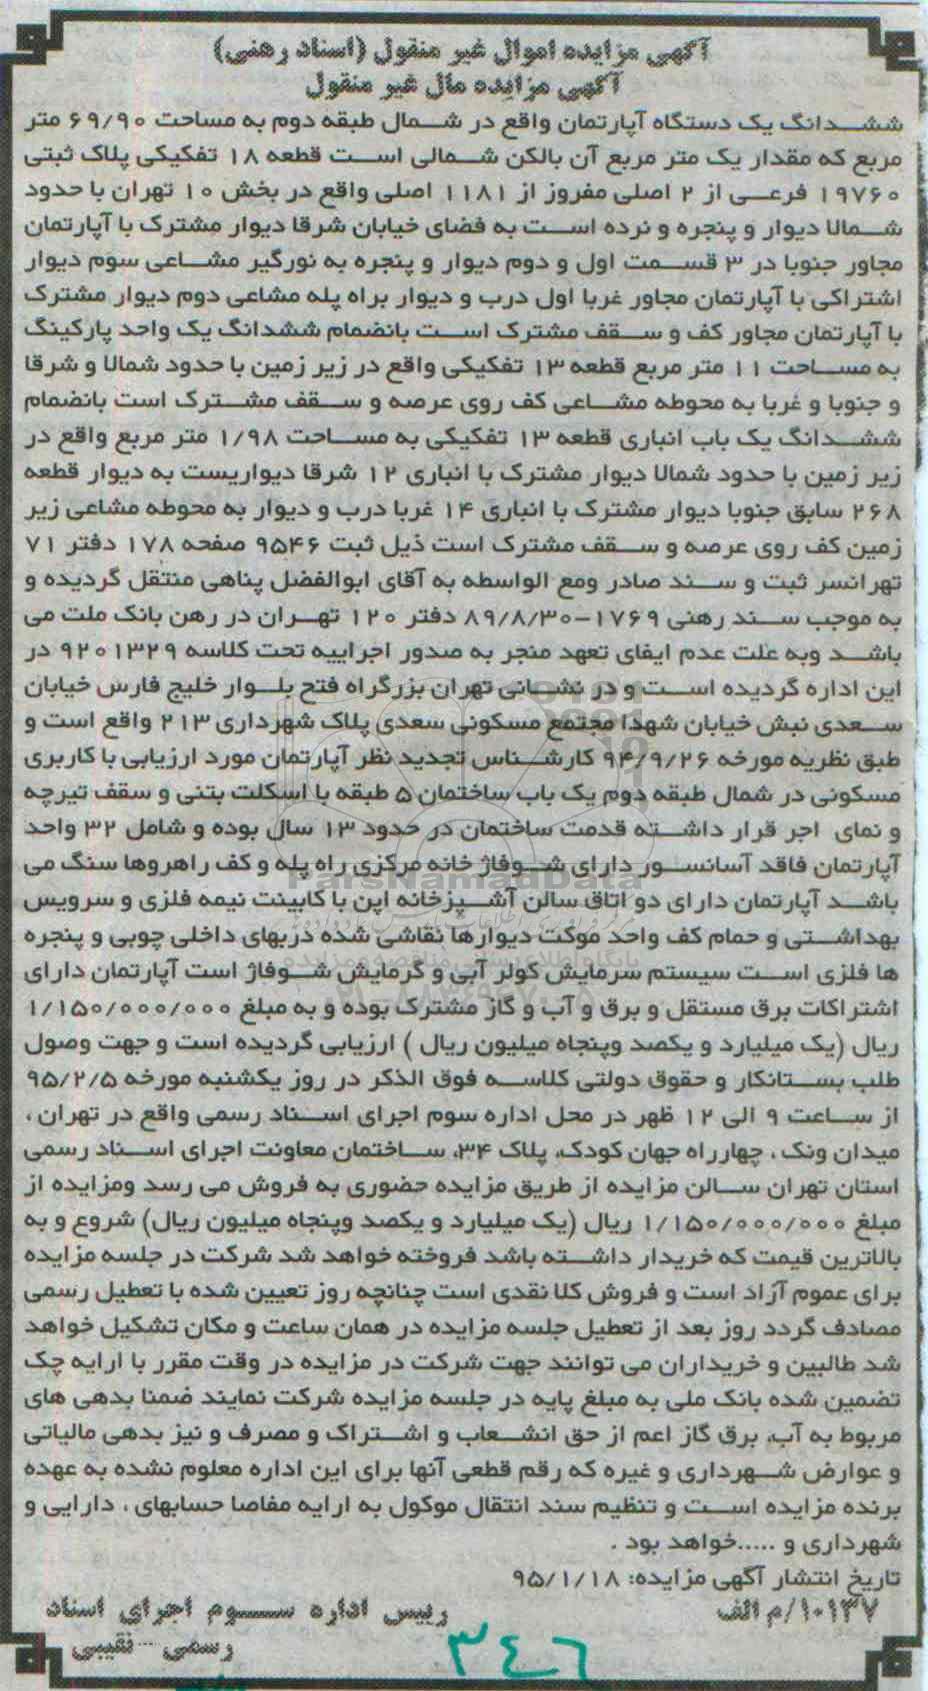 آگهی مزایده اموال غیر منقول (اسناد رهنی)
آگهی مزایده مال غیر منقول
ششدانگ یک دستگاه آپارتمان واقع در شمال طبقه دوم به مساحت ۶۹/۹۰ متر
مربع که مقدار یک متر مربع آن بالکن شمالی است قطعه ۱۸ تفکیکی پلاک ثبتی
۱۹۷۶۰ فرعی از ۲ اصلی مفروز از ۱۱۸۱ اصلی واقع در بخش ۱۰ تهران با حدود
شمالا دیوار و پنجره و نرده است به فضای خیابان شرقا دیوار مشترک با آپارتمان
مجاور جنوبا در ۳ قسمت اول و دوم دیوار و پنجره به نورگیر مشاعی سوم دیوار
اشتراکی با آپارتمان مجاور غربا اول درب و دیوار براه پله مشاعی دوم دیوار مشترک
با آپارتمان مجاور کف و سقف مشترک است بانضمام ششدانگ یک واحد پارکینگ
به مساحت ۱۱ متر مربع قطعه ۱۳ تفکیکی واقع در زیر زمین با حدود شمالا و شرقا
و جنوبا و غربا به محوطه مشاعی کف روی عرصه و سقف مشترک است بانضمام
ششدانگ یک باب انباری قطعه ۱۳ تفکیکی به مساحت ۱/۹۸ متر مربع واقع در
زیر زمین با حدود شمالا دیوار مشترک با انباری ۱۲ شرقا دیواریست به دیوار قطعه
۲۶۸ سابق جنوبا دیوار مشترک با انباری ۱۴ غربا درب و دیوار به محوطه مشاعی زیر
زمین کف روی عرصه و سقف مشترک است ذیل ثبت ۹۵۴۶ صفحه ۱۷۸ دفتر ۷۱
تهرانسر ثبت و سند صادر ومع الواسطه به آقای ابوالفضل پناهی منتقل گردیده و
به موجب سند رهنی ۱۷۶۹-۸۹/۸/۳۰ دفتر ۱۲۰ تهران در رهن بانک ملت می
باشد وبه علت عدم ایفای تعهد منجر به صدور اجراییه تحت کلاسه ۹۲۰۱۳۲۹ در
این اداره گردیده است و در نشانی تهران بزرگراه فتح بلوار خلیج فارس خیابان
سعدی نبش خیابان شهدا مجتمع مسکونی سعدی پلاک شهرداری ۲۱۳ واقع است و
طبق نظریه مورخه ۹۴/۹/۲۶ کارشناس تجدید نظر آپارتمان مورد ارزیابی با کاربری
مسکونی در شمال طبقه دوم یک باب ساختمان ۵ طبقه با اسکلت بتنی و سقف تیرچه
و نمای اجر قرار داشته قدمت ساختمان در حدود ۱۳ سال بوده و شامل ۳۲ واحد
آپارتمان فاقد آسانسور دارای شوفاژ خانه مرکزی راه پله و کف راهروها سنگ می
باشد آپارتمان دارای دو اتاق سالن آشپزخانه اپن با کابینت نیمه فلزی و سرویس
بهداشتی و حمام کف واحد موکت دیوارها نقاشی شده دربهای داخلی چوبی و پنجره
ها فلزی است سیستم سرمایش کولر آبی و گرمایش شوفاژ است آپارتمان دارای
اشتراکات برق مستقل و برق و آب و گاز مشترک بوده و به مبلغ ۱/۱۵۰/۰۰۰/۰۰۰
ریال (یک میلیارد و یکصد وپنجاه میلیون ریال ) ارزیابی گردیده است و جهت وصول
طلب بستانکار و حقوق دولتی کلاسه فوق الذکر در روز یکشنبه مورخه ۹۵/۲/۵
از ساعت ۹ الی ۱۲ ظهر در محل اداره سوم اجرای اسناد رسمی واقع در تهران ،
میدان ونک ، چهارراه جهان کودک، پلاک ۳۴، ساختمان معاونت اجرای اسناد رسمی
استان تهران سالن مزایده از طریق مزایده حضوری به فروش می رسد ومزایده از
مبلغ ۱/۱۵۰/۰۰۰/۰۰۰ ریال (یک میلیارد و یکصد وپنجاه میلیون ریال) شروع و به
بالاترین قیمت که خریدار داشته باشد فروخته خواهد شد شرکت در جلسه مزایده
برای عموم آزاد است و فروش کلا نقدی است چنانچه روز تعیین شده با تعطیل رسمی
مصادف گردد روز بعد از تعطیل جلسه مزایده در همان ساعت و مکان تشکیل خواهد
شد طالبین و خریداران می توانند جهت شرکت در مزایده در وقت مقرر با ارایه چک
تضمین شده بانک ملی به مبلغ پایه در جلسه مزایده شرکت نمایند ضمنا بدهی های
مربوط به آب، برق گاز اعم از حق انشعاب و اشتراک و مصرف و نیز بدهی مالیاتی
و عوارض شهرداری و غیره که رقم قطعی آنها برای این اداره معلوم نشده به عهده
برنده مزایده است و تنظیم سند انتقال موکول به ارایه مفاصا حسابهای ، دارایی و
شهرداری و .....خواهد بود .
تاریخ انتشار آگهی مزایده: ۹۵/۱/۱۸
۱۰۱۳۷/م الف
رییس اداره سوم اجرای اسناد
رسمی - نقیبی
۳۴۶
ParsNamadData